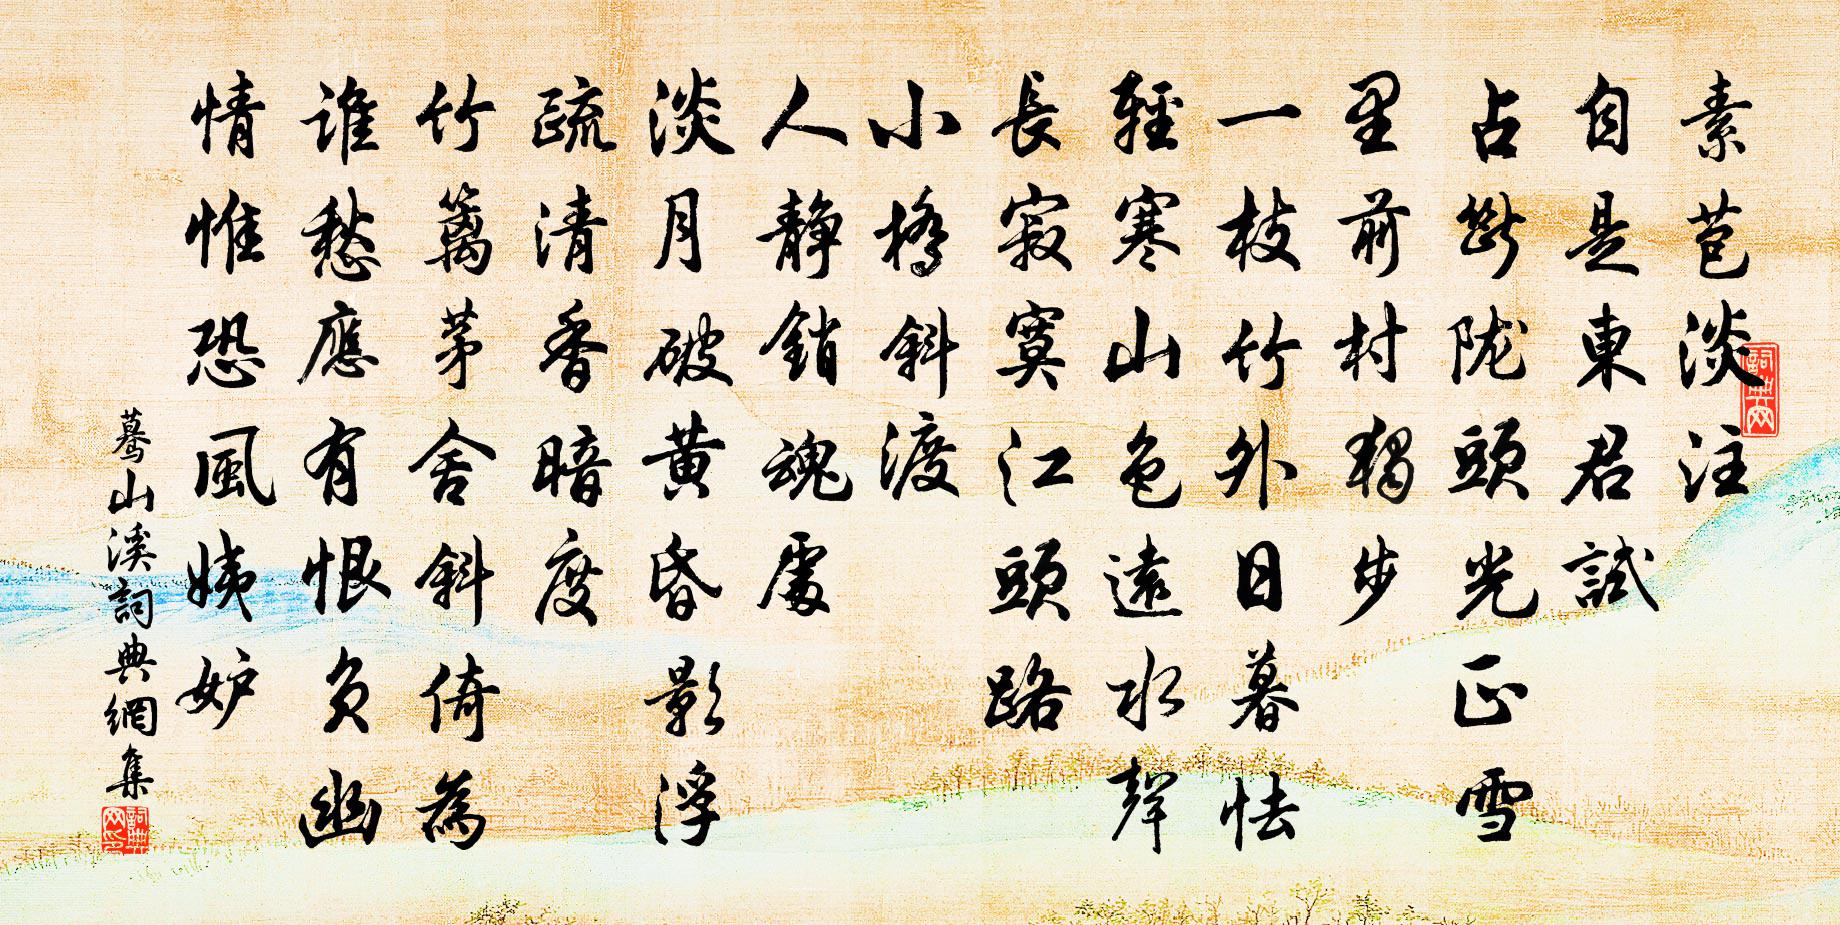 素苞淡注
自是東君試
占斷陇頭光正雪
里前村獨步
一枝竹外日暮怯
輕寒山色遠水聲
長寂寞江頭路
小橋斜渡
人靜銷魂處
淡月破黄昏影浮
疏清香暗度
竹篱茅舍斜倚為
誰愁應有恨負幽
情惟恐風姨妒
驀山溪詞典網集
詞典网
詞典网印